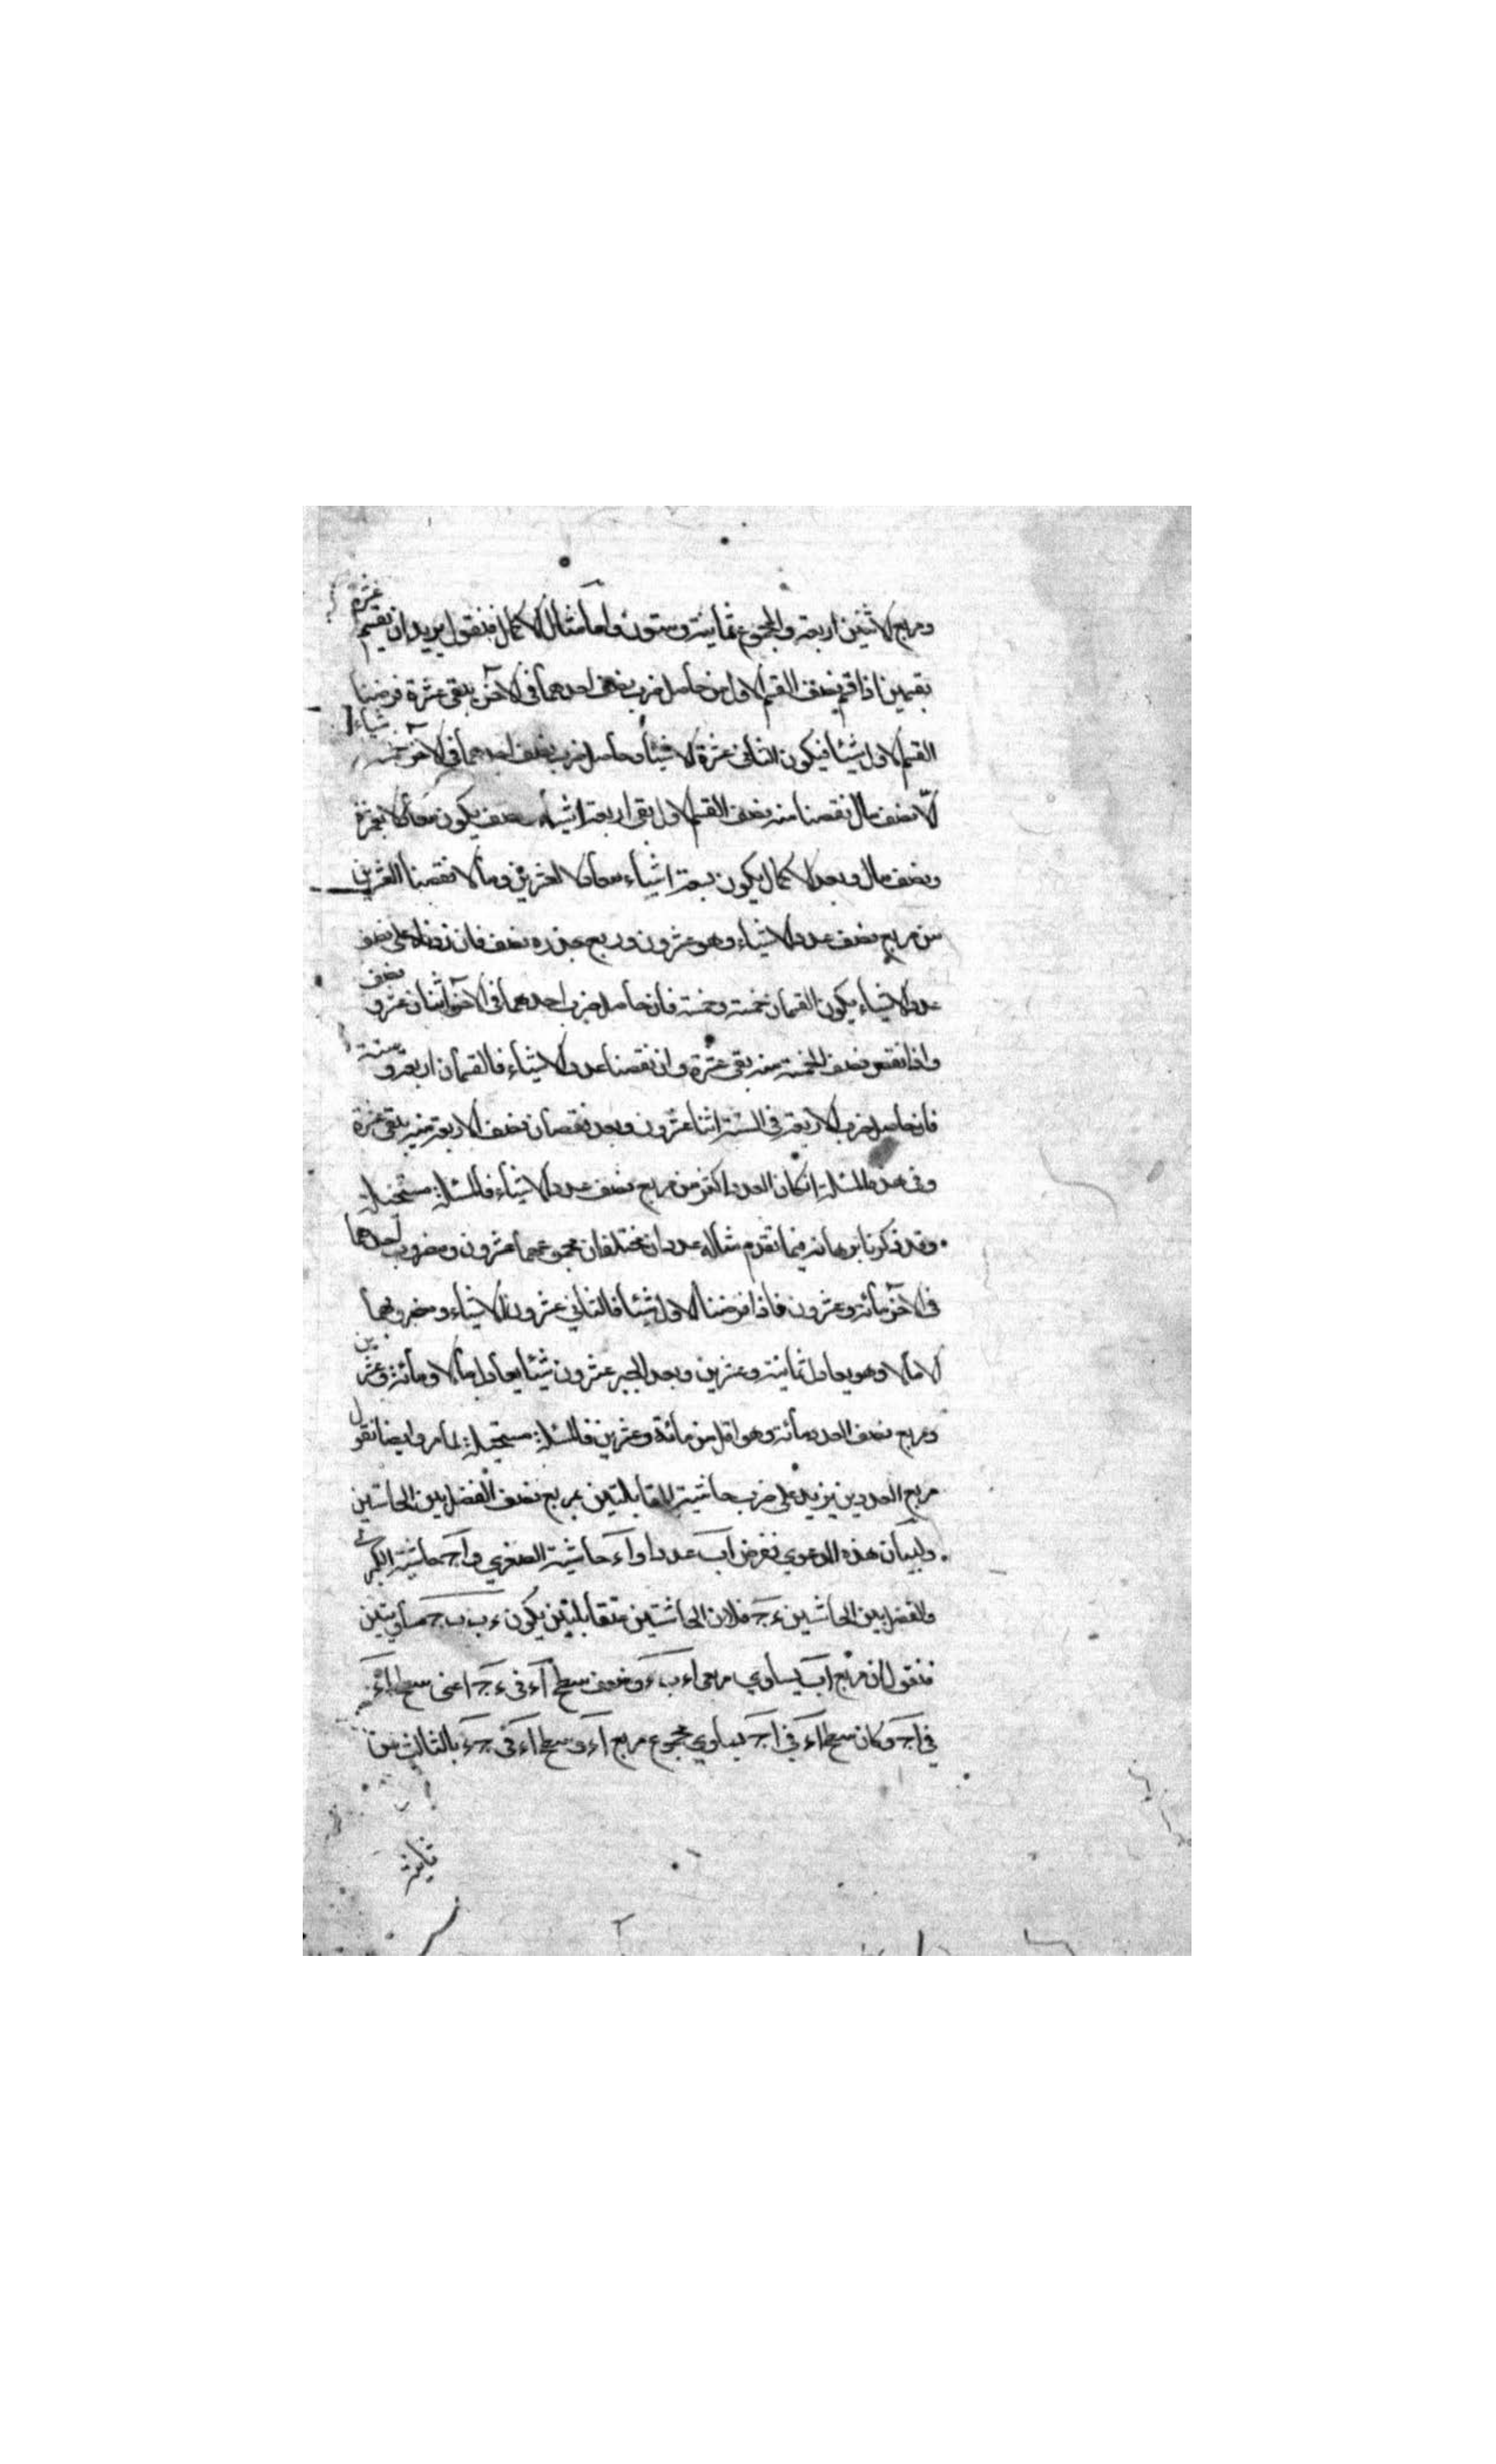 ومربع الاثنين اربعة والمجموع ثمانية وستون واما مثال الاكمال فنقول نريد ان نقسم عشرة
بقسمين اذا نقص نصف القسم الاول من حاصل ضرب نصف احدهما فى الآخر يبقى عشرة فرضنا
القسم الاول شيئا فيكون الثانى عشرة الا شيئا وحاصل ضرب نصف احدهما فى الآخر خمسة اشياء
الا نصف مال نقصنا منه نصف القسم الاول بقى اربعة اشياء ونصف يكون معادلا لعشرة
ونصف مال وبعد الاكمال يكون تسعة اشياء معادلا لعشرين ومالا نقصنا العشرين
من مربع نصف عدد الاشياء وهو عشرون وربع جذره نصف فان زدناه على نصف
عدد الاشياء يكون القسمان خمسة وخمسة فان حاصل ضرب احدهما فى الآخر اثنان عشر و نصف
واذا نقص نصف الخمسة منه بقى عشرة وان نقصنا عدد الاشياء فالقسمان اربعة و ستة
فان حاصل ضرب الاربعة فى الستة اثنا عشرون وبعد نقصان نصف الاربعة منه يبقى عشرة
وفى هذه المسئلة ان كان العدد اكثر من مربع نصف عدد الاشياء فالمسئلة مستحيلة
وقد ذكرنا برهانه فيما تقدم مثاله عددان مختلفان مجموعهما عشرون ومضروب احدهما
فى الآخر مائة وعشرون فاذا فرضنا الاول شيئا فالثانى عشرون الا شياء ومضروبهما
الا مالا وهو يعادل ثمانية وعشرين وبعد الجبر عشرون شيئا يعادل مالا ومائة وعشرين
ومربع نصف العدد مائة وهو اقل من مائة وعشرين فالمسئلة مستحيلة لما مر وايضا نقول
مربع العددين يزيد على ضرب حاشية المقابلتين بمربع نصف الفضل بين الحاشتين
ولبيان هذه الدعوي نفرض اب عددا و اء حاشية الصغري و اج حاشية الكبري
والفضل بين الحاشتين ء ج فلان الحاشتين متقابلتين يكون ء ب ب ج متساويتين
فنقول ان مربع اب يساوي مربعى اء ب ء وضعف سطح اء فى ء ج اعنى سطح اء
فى اج وكان سطح اء فى اج يساوي مجموع مربع اء وسطح اء فى ج ء بالثالث من
ثانية